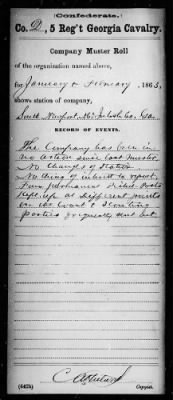 (Confederate.)
Co. D, 5 Reg't Georgia Cavalry.
Company Muster Roll
of the organization named above,
for January & February, 1863,
show station of company,
South Newport, McIntosh Co., Ga.
RECORD OF EVENTS.
The Company has been in
no action since last muster.
No Change of Station
Nothing of interest to report.
Four permanent Picket Posts
kept up at different points
on the Coast & Scouting
parties frequently sent out.
(642b)
Copyist.